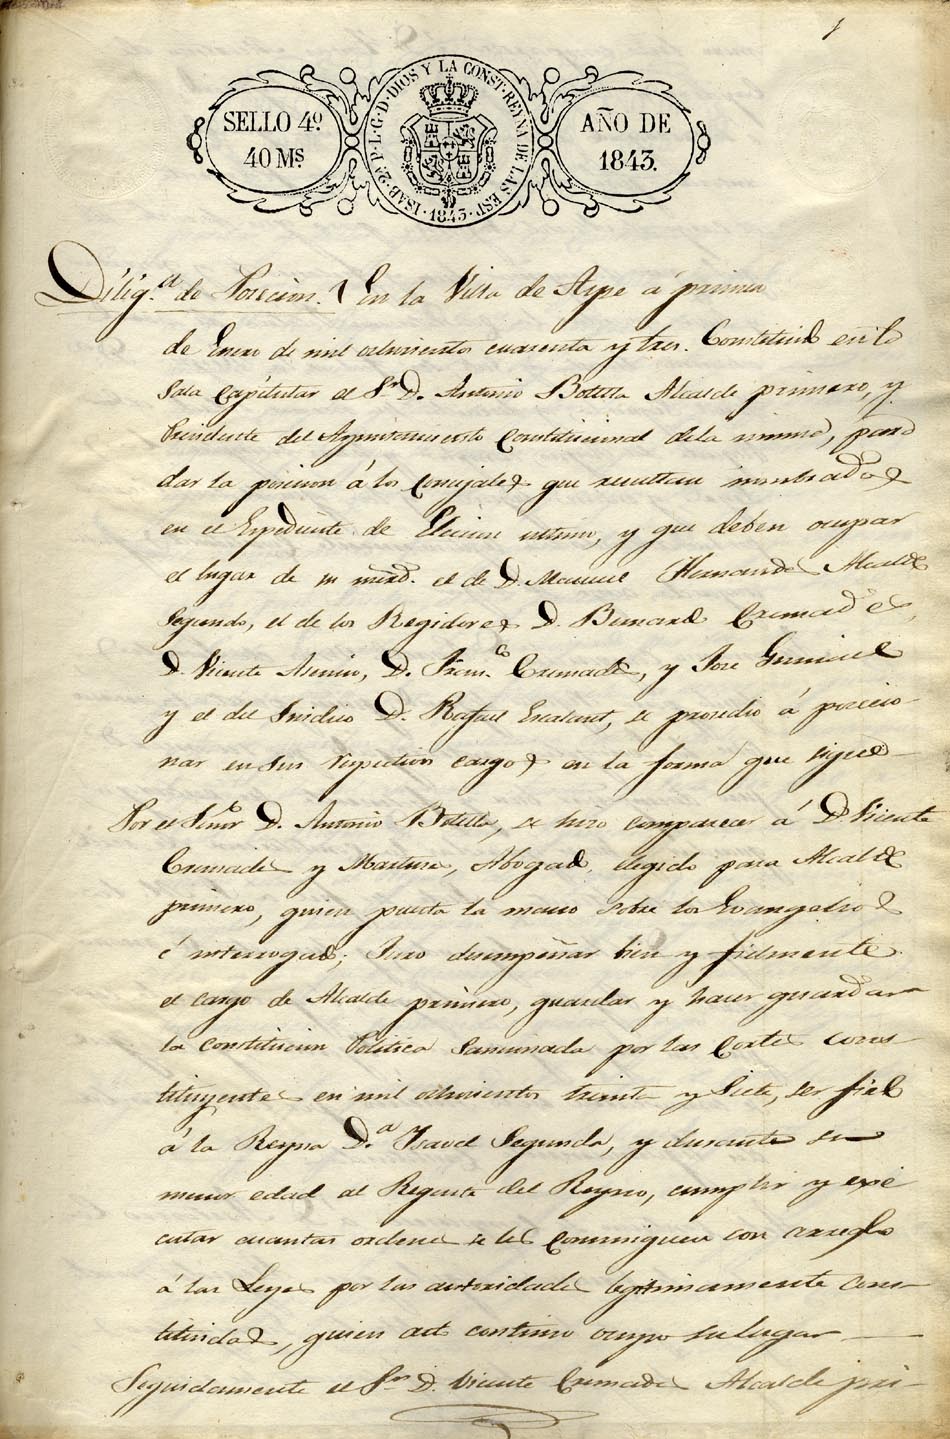 1
SELLO 4º
40 Ms
ISAB. 2ª P. L. G. D. DIOS Y LA CONST. REYNA DE LAS ESP. 1843
AÑO DE
1843.
Dilig.ª de Posecion. En la Villa de Aspe á primero
de Enero de mil ochocientos cuarenta y tres. Constituido en la
Sala Capitular el Sr. D. Antonio Botella Alcalde primero, y
Presidente del Ayuntamiento Constitucional de la misma, para
dar la posecion á los Concejales que resultan nombrados
en el Expediente de Eleccion ultimo, y que deben ocupar
el lugar de el de D. Manuel Hernandes Alcalde
Segundo, el de los Regidores D. Bernardo Cremades,
D. Vicente Asencio, D. Franco Cremades, y Jose
y el del Sindico D. Rafael Escalant, se prosedio á posecio
nar en sus respectivos cargos en la forma que sigue
Por el Señor D. Antonio Botella, se hizo comparecer á D. Vicente
Cremades y Martines, Abogado, elegido para Alcalde
primero, quien puesta la mano sobre los Evangelios
é interrogado; Juro desempeñar bien y fielmente
el cargo de Alcalde primero, guardar y hacer guardar
la Constitucion Politica Sancionada por las Cortes cons
tituyentes en mil ochocientos treinta y siete, ser fiel
á la Reyna D.ª Isavel Segunda, y durante su
menor edad al Regente del Reyno, cumplir y eje
cutar cuantas ordenes se les comuniquen con arreglo
á las Leyes por las autoridades legitimamente cons
tituidas, quien acto continuo ocupo su lugar
Seguidamente el Sr. D. Vicente Cremades Alcalde pri-